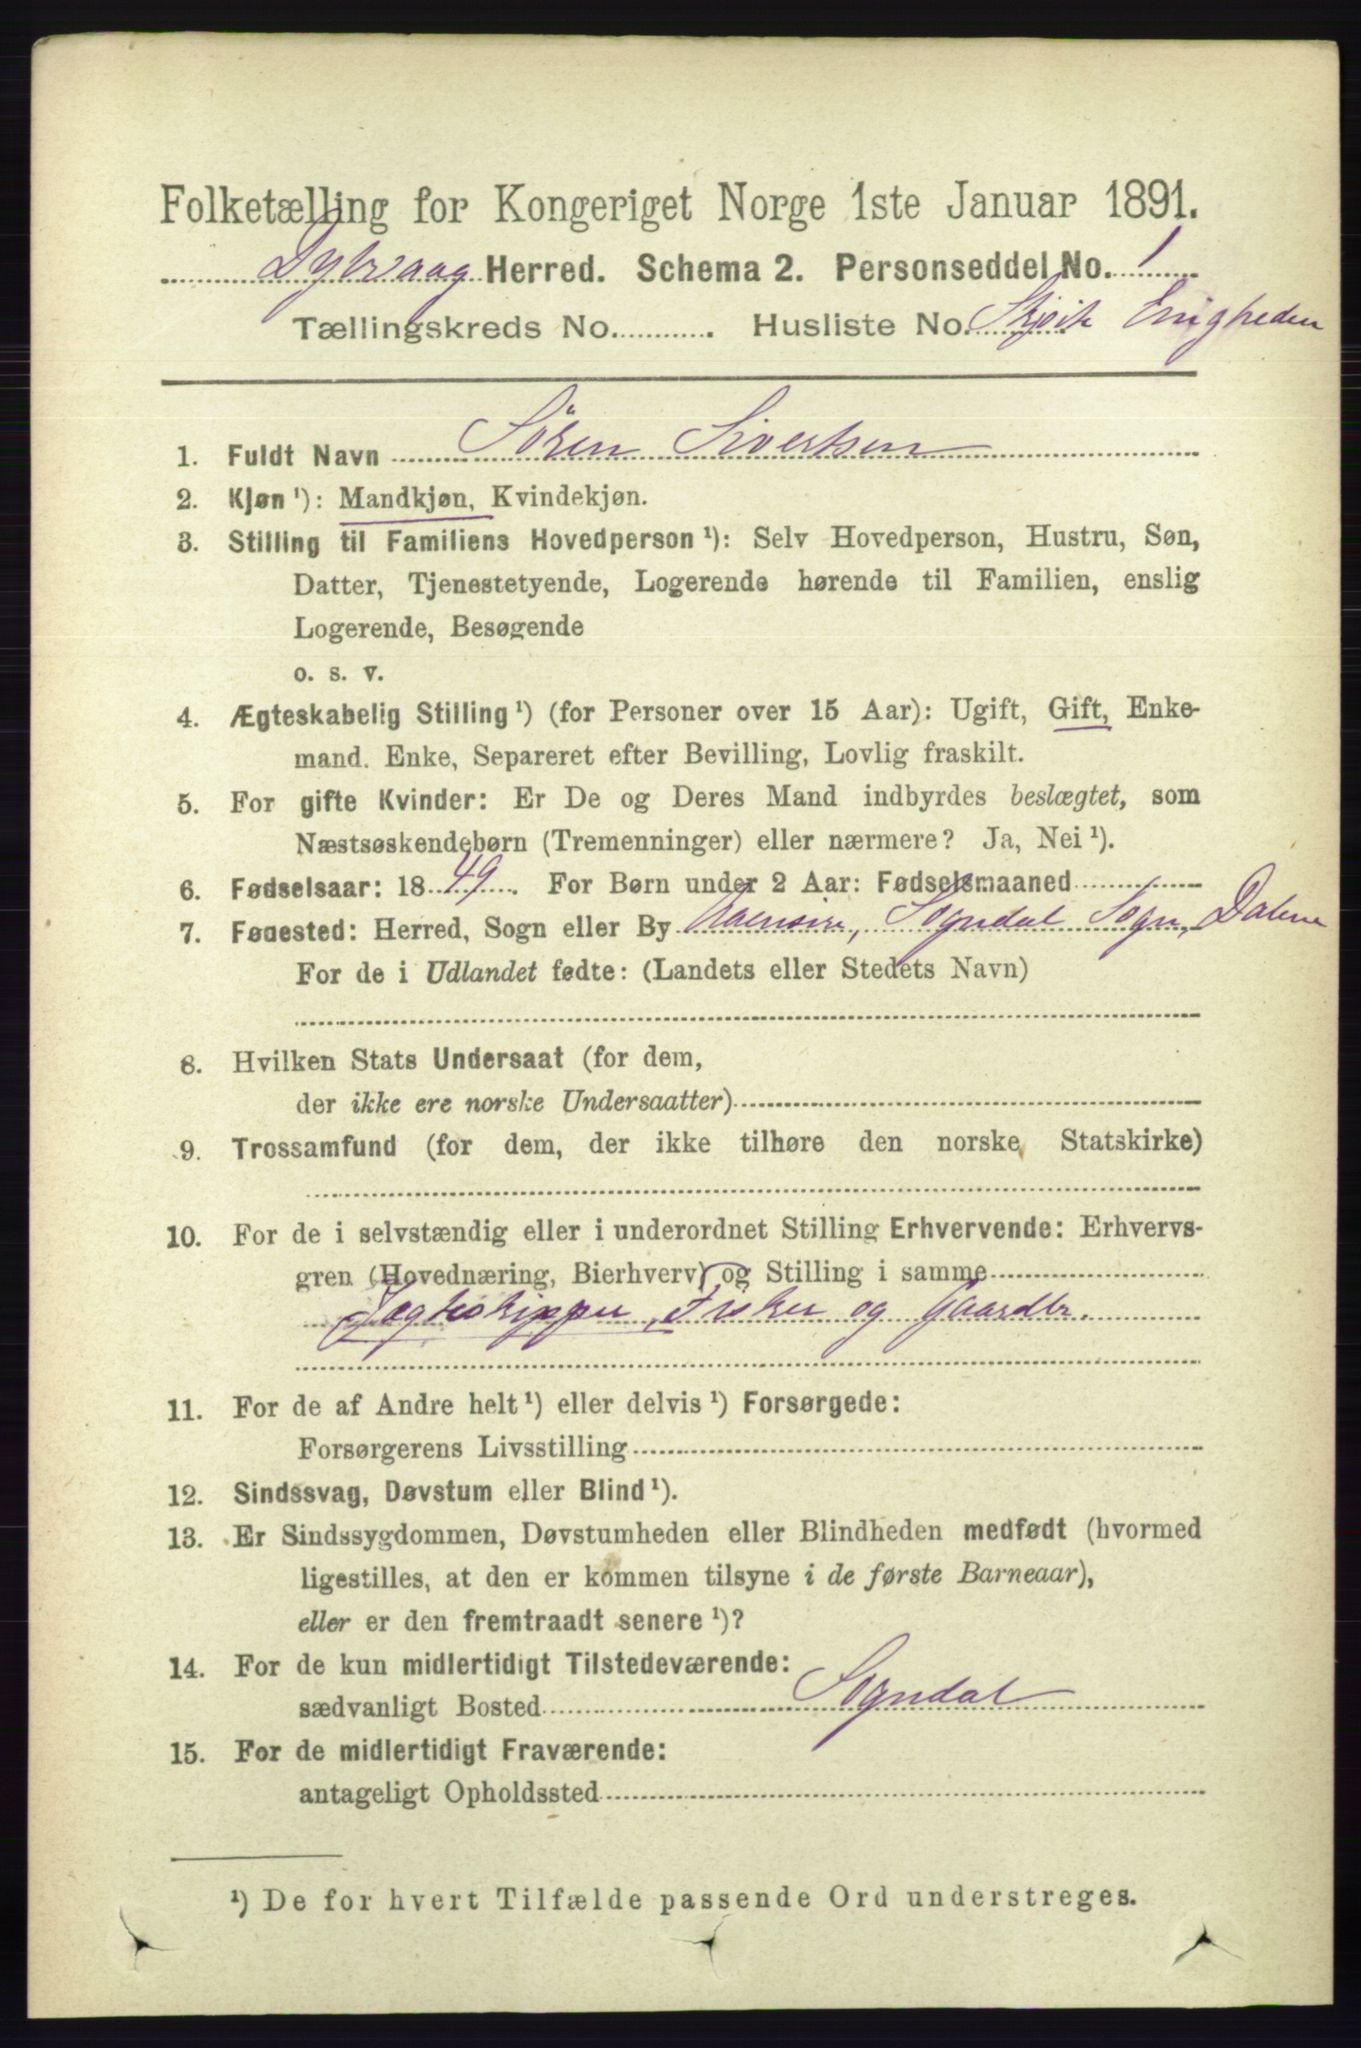 Folketælling for Kongeriget Norge 1ste Januar 1891.
Dybvaag Herred. Schema 2. Personseddel No. 1
Tællingskreds No. Husliste No. Skjøit Enigheden
1. Fuldt Navn Sören Sivertsen
2. Kjøn ¹): Mandkjøn, Kvindekjøn.
3. Stilling til Familiens Hovedperson ¹): Selv Hovedperson, Hustru, Søn,
Datter, Tjenestetyende, Logerende hørende til Familien, enslig
Logerende, Besøgende
o. s. v.
4. Ægteskabelig Stilling ¹) (for Personer over 15 Aar): Ugift, Gift, Enke-
mand. Enke, Separeret efter Bevilling, Lovlig fraskilt.
5. For gifte Kvinder: Er De og Deres Mand indbyrdes beslægtet, som
Næstsøskendebørn (Tremenninger) eller nærmere? Ja, Nei ¹).
6. Fødselsaar: 1849. For Børn under 2 Aar: Fødselsmaaned
7. Fødested: Herred, Sogn eller By Aaensire, Sogndal Sogn, Dalene
For de i Udlandet fødte: (Landets eller Stedets Navn)
8. Hvilken Stats Undersaat (for dem,
der ikke ere norske Undersaatter)
9. Trossamfund (for dem, der ikke tilhøre den norske Statskirke)
10. For de i selvstændig eller i underordnet Stilling Erhvervende: Erhvervs-
gren (Hovednæring, Bierhverv) og Stilling i samme
Jægteskipper, Fisker og Gaardbr.
11. For de af Andre helt ¹) eller delvis ¹) Forsørgede:
Forsørgerens Livsstilling
12. Sindssvag, Døvstum eller Blind ¹).
13. Er Sindssygdommen, Døvstumheden eller Blindheden medfødt (hvormed
ligestilles, at den er kommen tilsyne i de første Barneaar),
eller er den fremtraadt senere ¹)?
14. For de kun midlertidigt Tilstedeværende:
sædvanligt Bosted Sogndal
15. For de midlertidigt Fraværende:
antageligt Opholdssted
¹) De for hvert Tilfælde passende Ord understreges.